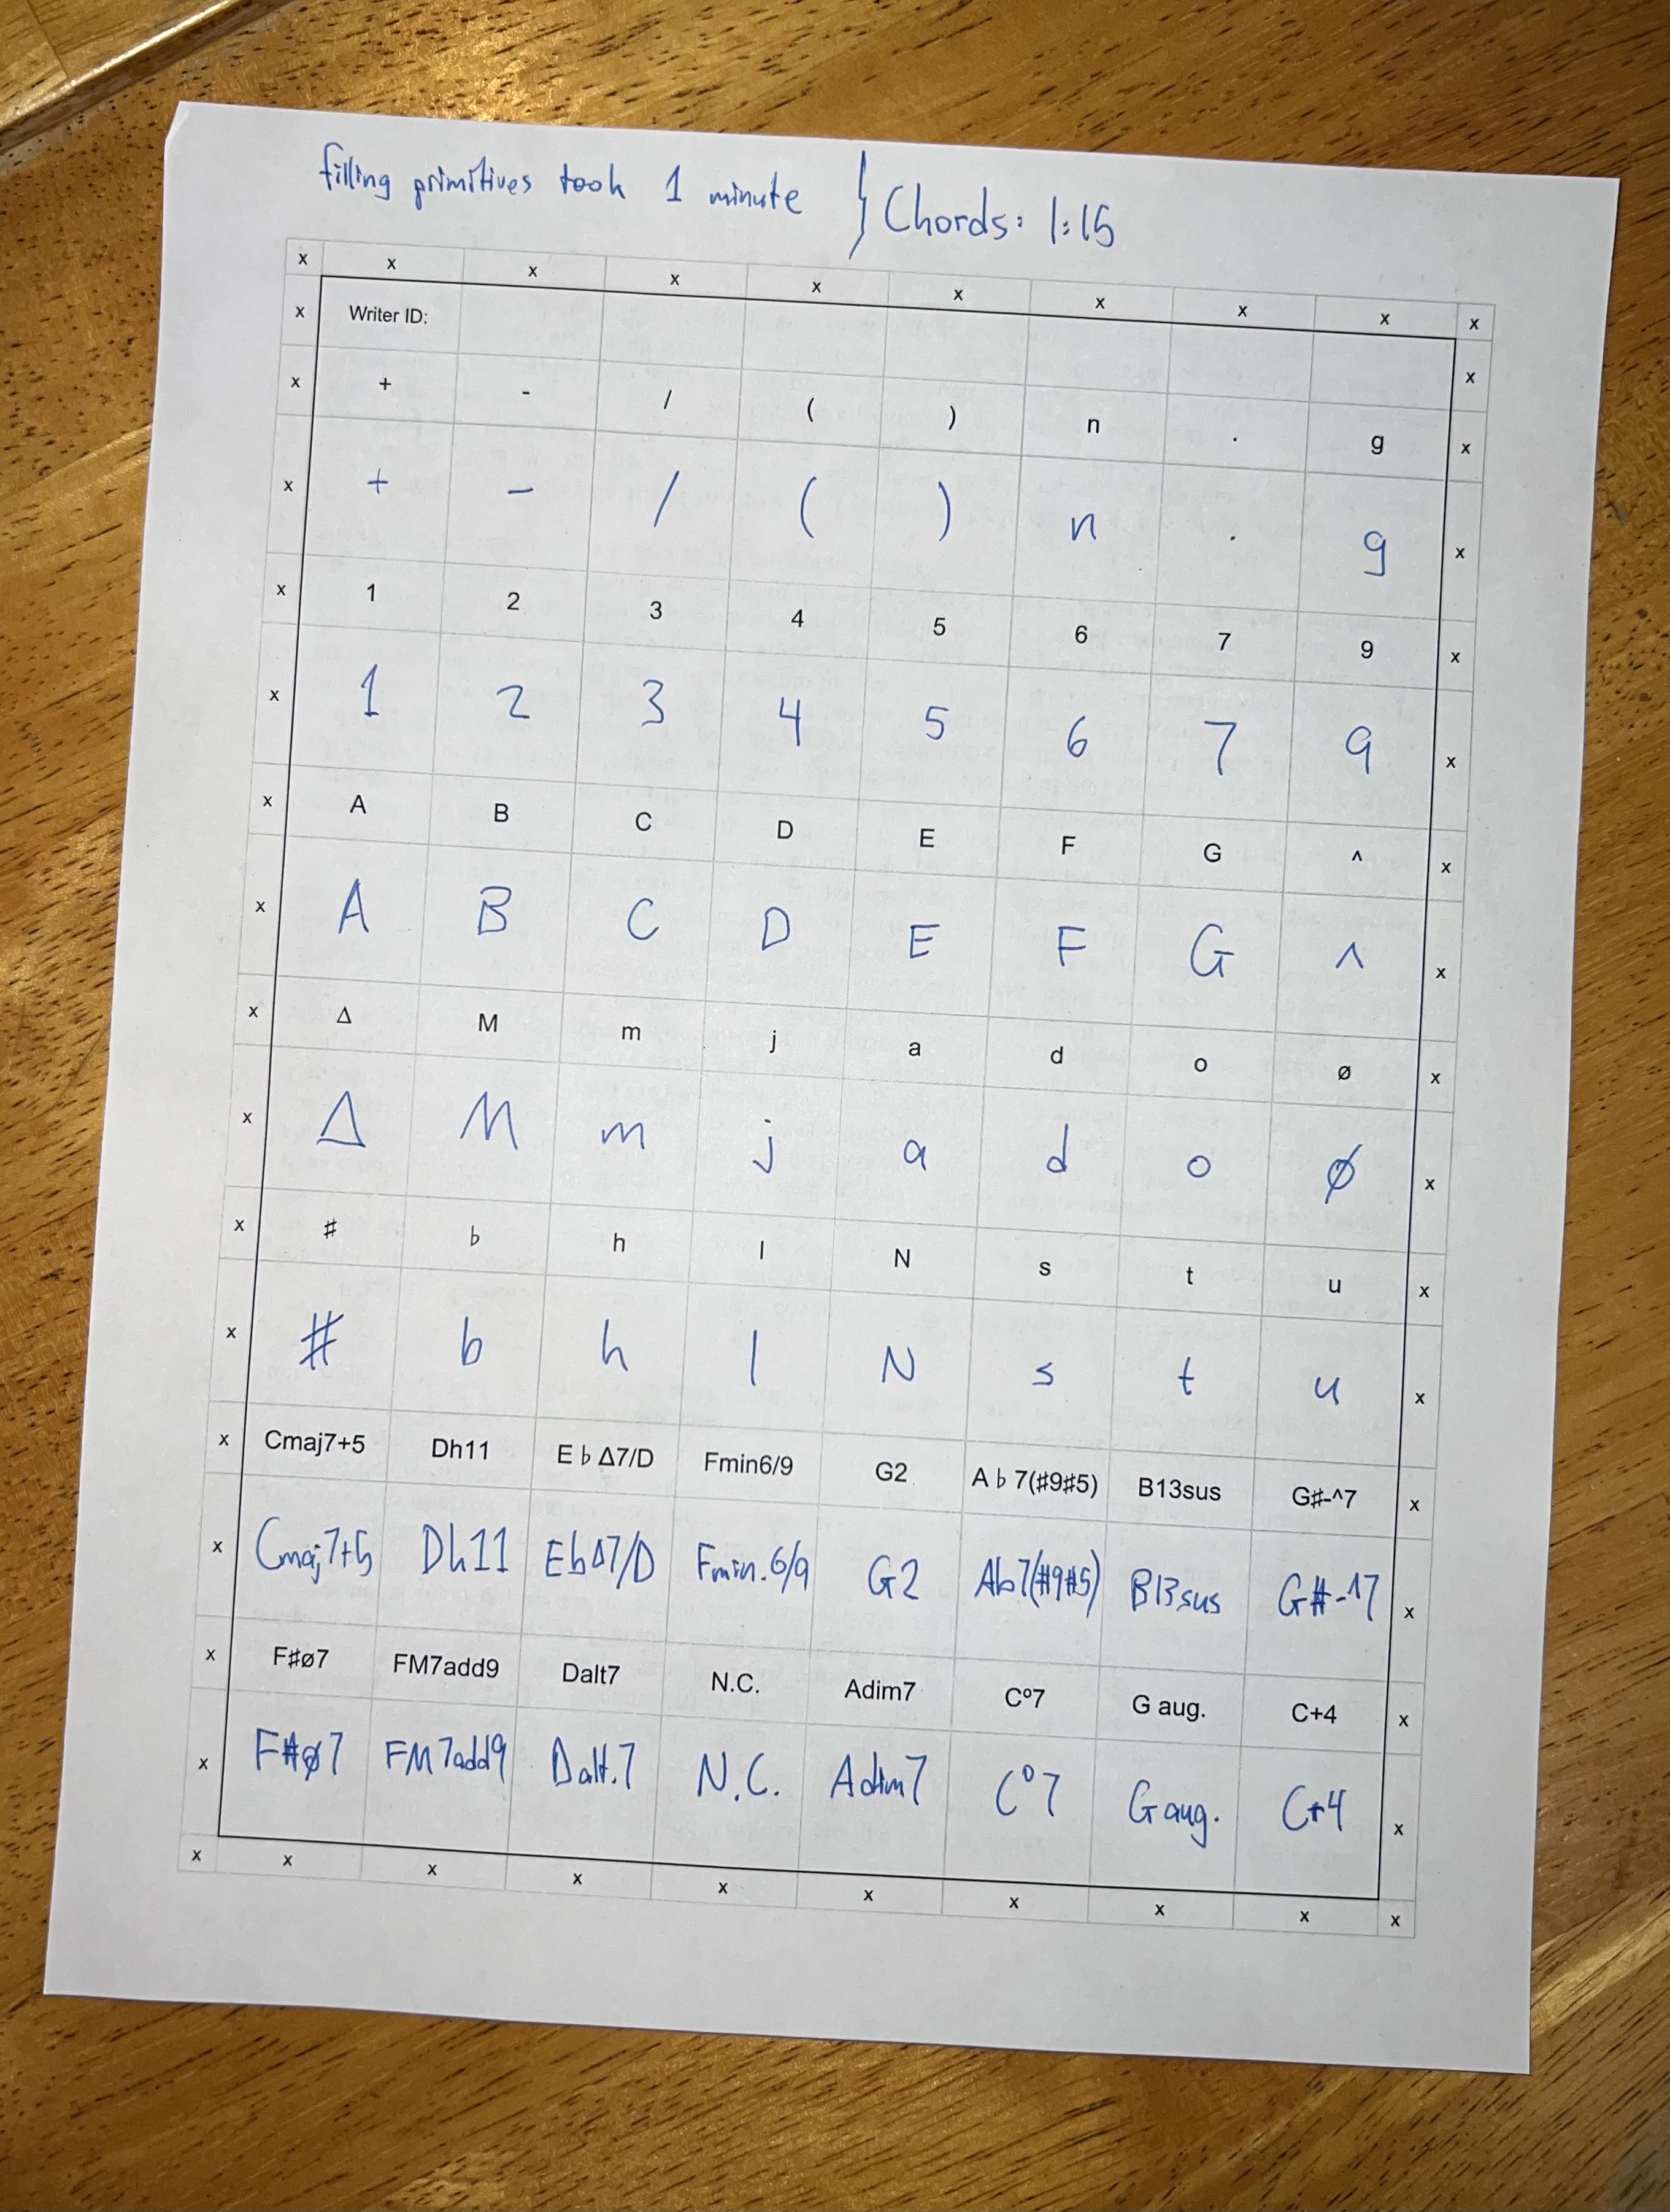 filling primitives took 1 minute } Chords: 1:15
x x x x x x x x x x
x Writer ID: x
x + - / ( ) n . g x
x + - / ( ) n . g x
x 1 2 3 4 5 6 7 9 x
x 1 2 3 4 5 6 7 9 x
x A B C D E F G ^ x
x A B C D E F G ^ x
x Δ M m j a d o ø x
x Δ M m j a d o ø x
x ♯ ♭ h l N s t u x
x # b h l N s t u x
x Cmaj7+5 Dh11 E♭Δ7/D Fmin6/9 G2 A♭7(♯9♯5) B13sus G♯-^7 x
x Cmaj7+5 Dh11 EbΔ7/D Fmin.6/9 G2 Ab7(#9#5) B13sus G#-^7 x
x F♯ø7 FM7add9 Dalt7 N.C. Adim7 Cº7 G aug. C+4 x
x F#ø7 FM7add9 Dalt.7 N.C. Adim7 Cº7 G aug. C+4 x
x x x x x x x x x x